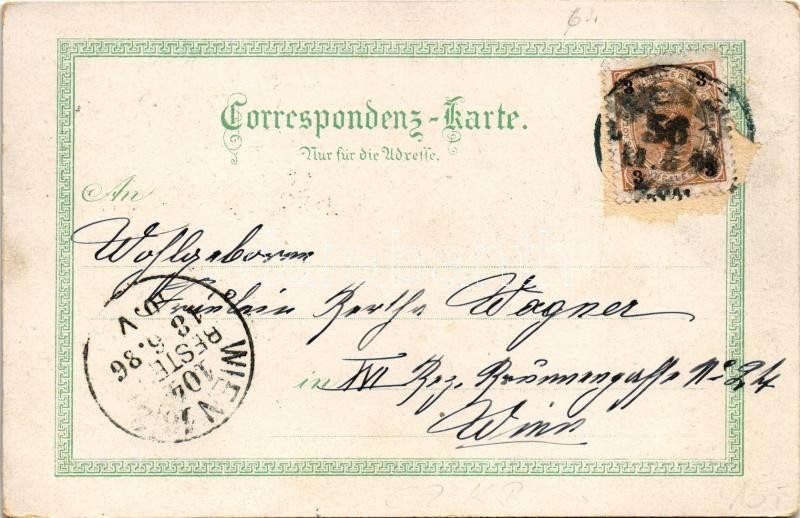 6.
3 3
50
3 3
Correspondenz-Karte.
Nur für die Adresse.
An
Wohlgeboren
Fräulein Bertha Wagner
in XVI Bez. Brunnengasse No 24
Wien
WIEN 16/1
104
BESTE
13 6.86
V